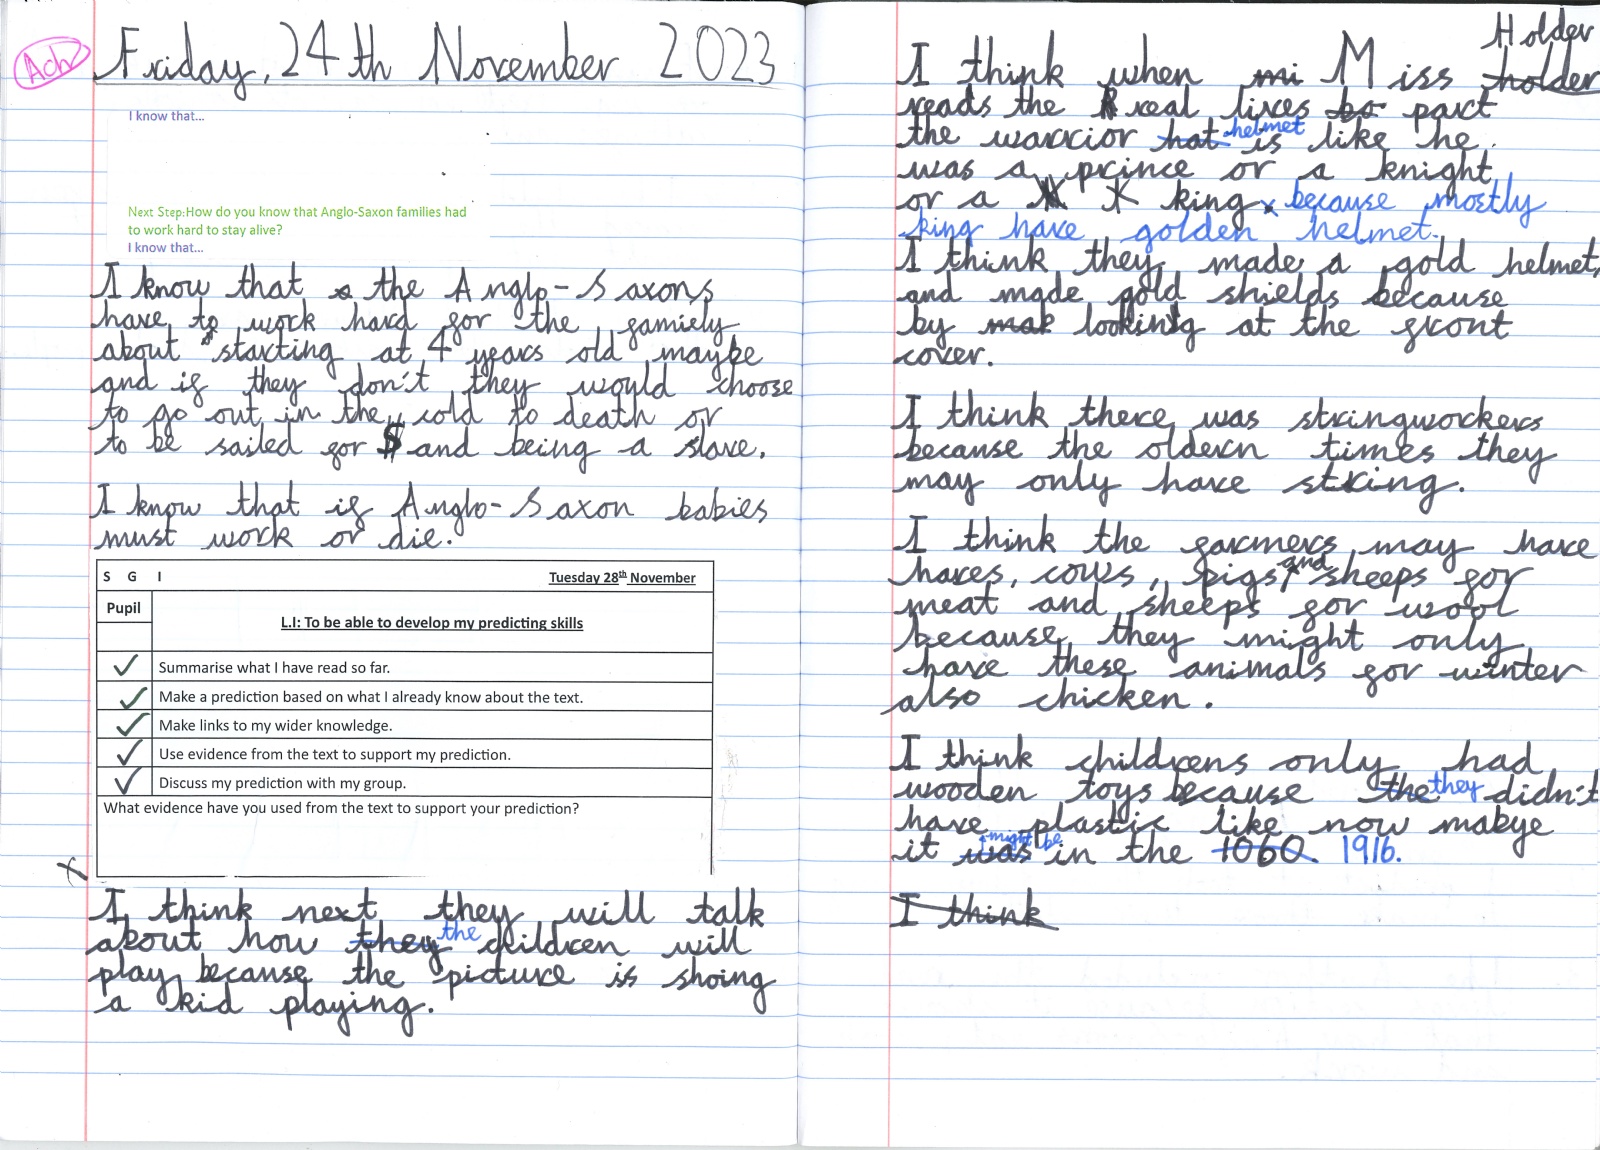 Ach
Friday, 24th November 2023
I know that...
Next Step:How do you know that Anglo-Saxon families had
to work hard to stay alive?
I know that...
I know that the Anglo-Saxons
have to work hard for the famiely
about starting at 4 years old maybe
and if they don't they would choose
to go out in the cold to death or
to be sailed for $ and being a slave.
I know that if Anglo-Saxon babies
must work or die.
S G I Tuesday 28th November
Pupil
L.I: To be able to develop my predicting skills
✓ Summarise what I have read so far.
✓ Make a prediction based on what I already know about the text.
✓ Make links to my wider knowledge.
✓ Use evidence from the text to support my prediction.
✓ Discuss my prediction with my group.
What evidence have you used from the text to support your prediction?
I think next they will talk
about how they the children will
play because the picture is shoing
a kid playing.
I think when mi Miss holder Holder
reads the real lives bo part
the warrior hat helmet is like he
was a prince or a knight
or a king. because mostly
king have golden helmet.
I think they made a gold helmet,
and made gold shields because
by mak looking at the front
cover.
I think there was stringworkers
because the oldern times they
may only have string.
I think the farmers may have
hares, cows, pigs, and sheeps for
meat and sheeps for wool
because they might only
have these animals for winter
also chicken.
I think childrens only had
wooden toys because the they didn't
have plastic like now mabye
it was might be in the 1060. 1916.
I think